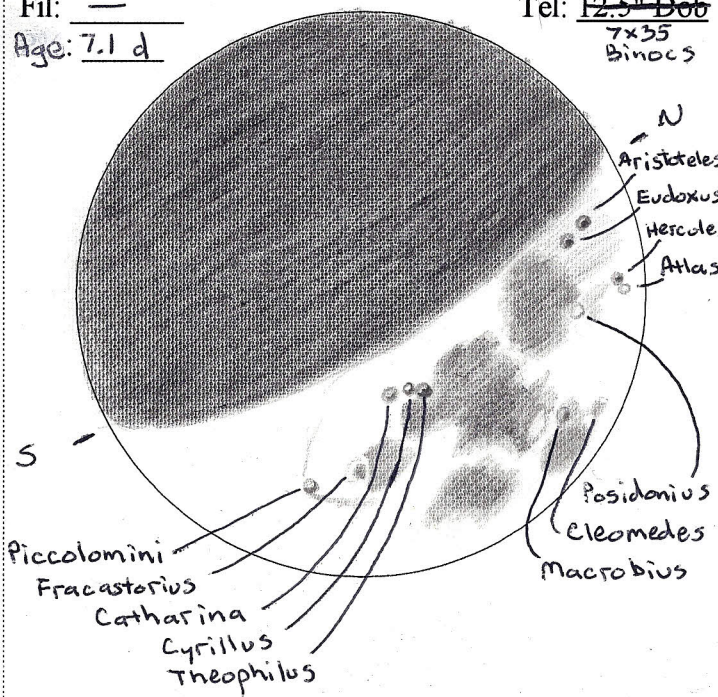 Fil: —
Tel: 12.5" Dob
Age: 7.1 d
7x35
Binocs
N
Aristoteles
Eudoxus
Hercule
Atlas
S
Posidonius
Cleomedes
Macrobius
Piccolomini
Fracastorius
Catharina
Cyrillus
Theophilus